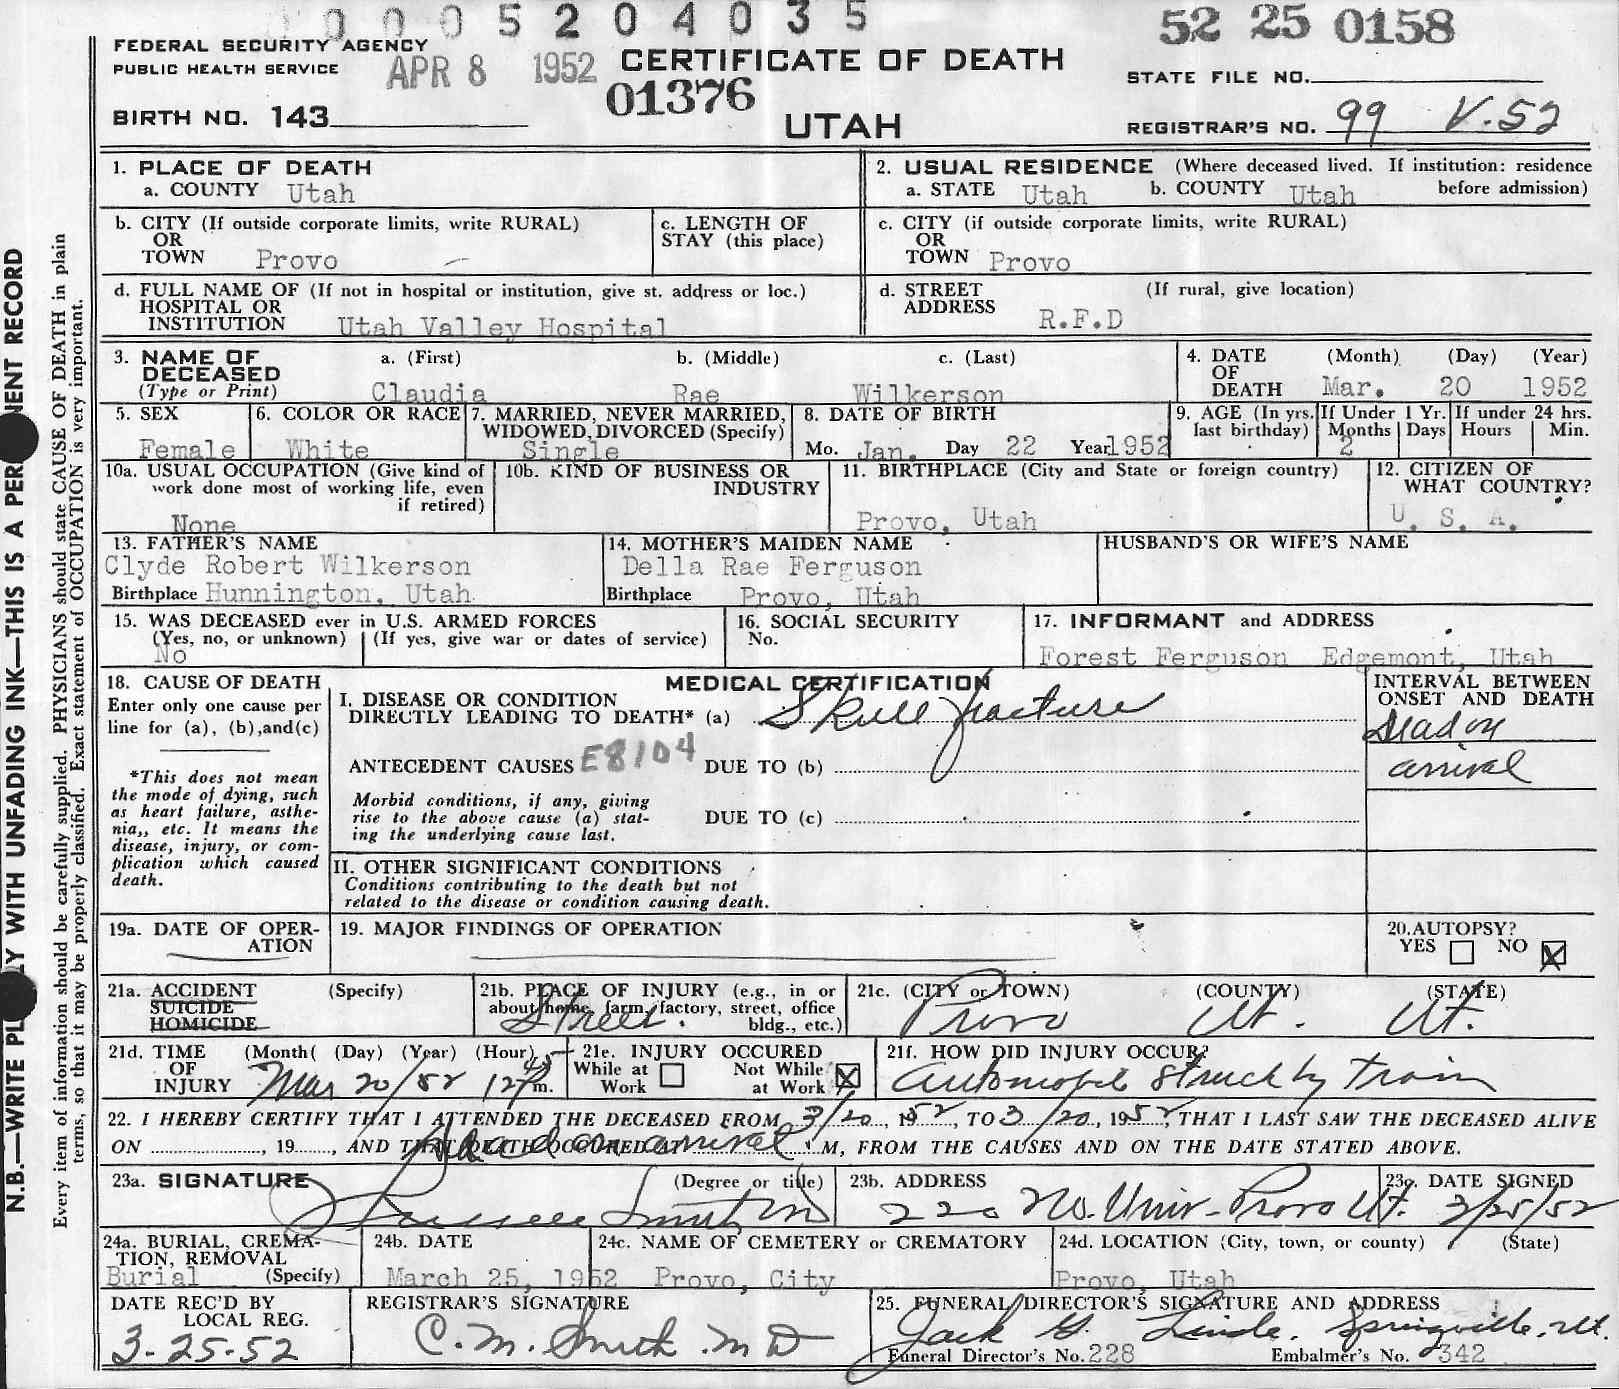 0 0 0 5 2 0 4 0 3 5
52 25 0158
FEDERAL SECURITY AGENCY
PUBLIC HEALTH SERVICE
APR 8 1952
CERTIFICATE OF DEATH
01376
UTAH
STATE FILE NO.
BIRTH NO. 143
REGISTRAR'S NO. 99 V-52
1. PLACE OF DEATH
a. COUNTY Utah
2. USUAL RESIDENCE (Where deceased lived. If institution: residence before admission)
a. STATE Utah b. COUNTY Utah
b. CITY (If outside corporate limits, write RURAL)
OR
TOWN Provo
c. LENGTH OF
STAY (this place)
c. CITY (if outside corporate limits, write RURAL)
OR
TOWN Provo
d. FULL NAME OF (If not in hospital or institution, give st. address or loc.)
HOSPITAL OR
INSTITUTION Utah Valley Hospital
d. STREET (If rural, give location)
ADDRESS R.F.D
3. NAME OF
DECEASED
(Type or Print)
a. (First) b. (Middle) c. (Last)
Claudia Rae Wilkerson
4. DATE (Month) (Day) (Year)
OF
DEATH Mar. 20 1952
5. SEX
Female
6. COLOR OR RACE
White
7. MARRIED, NEVER MARRIED,
WIDOWED, DIVORCED (Specify)
Single
8. DATE OF BIRTH
Mo. Jan. Day 22 Year 1952
9. AGE (In yrs. last birthday)
If Under 1 Yr.
Months Days
2
If under 24 hrs.
Hours Min.
10a. USUAL OCCUPATION (Give kind of
work done most of working life, even
if retired)
None
10b. KIND OF BUSINESS OR
INDUSTRY
11. BIRTHPLACE (City and State or foreign country)
Provo, Utah
12. CITIZEN OF
WHAT COUNTRY?
U. S. A.
13. FATHER'S NAME
Clyde Robert Wilkerson
Birthplace Hunnington, Utah
14. MOTHER'S MAIDEN NAME
Della Rae Ferguson
Birthplace Provo, Utah
HUSBAND'S OR WIFE'S NAME
15. WAS DECEASED ever in U.S. ARMED FORCES
(Yes, no, or unknown) (If yes, give war or dates of service)
No
16. SOCIAL SECURITY
No.
17. INFORMANT and ADDRESS
Forest Ferguson Edgemont, Utah
18. CAUSE OF DEATH
Enter only one cause per
line for (a), (b), and (c)
*This does not mean
the mode of dying, such
as heart failure, asthe-
nia,, etc. It means the
disease, injury, or com-
plication which caused
death.
MEDICAL CERTIFICATION
I. DISEASE OR CONDITION
DIRECTLY LEADING TO DEATH* (a) Skull fracture
ANTECEDENT CAUSES E8104 DUE TO (b)
Morbid conditions, if any, giving
rise to the above cause (a) stat-
ing the underlying cause last.
DUE TO (c)
INTERVAL BETWEEN
ONSET AND DEATH
Dead on
arrival
II. OTHER SIGNIFICANT CONDITIONS
Conditions contributing to the death but not
related to the disease or condition causing death.
19a. DATE OF OPER-
ATION
19. MAJOR FINDINGS OF OPERATION
20. AUTOPSY?
YES NO X
21a. ACCIDENT (Specify)
SUICIDE
HOMICIDE
21b. PLACE OF INJURY (e.g., in or
about home, farm, factory, street, office
bldg., etc.)
Street.
21c. (CITY or TOWN) (COUNTY) (STATE)
Provo Ut. Ut.
21d. TIME (Month( (Day) (Year) (Hour)
OF
INJURY Mar 20/52 12 45 P m.
21e. INJURY OCCURED
While at Work
Not While at Work X
21f. HOW DID INJURY OCCUR?
Automobile struck by train
22. I HEREBY CERTIFY THAT I ATTENDED THE DECEASED FROM 3/20, 1952, TO 3/20, 1952, THAT I LAST SAW THE DECEASED ALIVE
ON , 19 , AND THAT DEATH OCCURED AT Dead on arrival M, FROM THE CAUSES AND ON THE DATE STATED ABOVE.
23a. SIGNATURE (Degree or title)
Smith MD
23b. ADDRESS
220 No. Univ- Provo Ut.
23c. DATE SIGNED
3/25/52
24a. BURIAL, CREMA-
TION, REMOVAL
(Specify)
Burial
24b. DATE
March 25, 1952
24c. NAME OF CEMETERY or CREMATORY
Provo, City
24d. LOCATION (City, town, or county) (State)
Provo, Utah
DATE REC'D BY
LOCAL REG.
3-25-52
REGISTRAR'S SIGNATURE
C. M. Smith. M D
25. FUNERAL DIRECTOR'S SIGNATURE AND ADDRESS
Jack Springville, Ut.
Funeral Director's No. 228 Embalmer's No. 342
N.B.—WRITE PL Y WITH UNFADING INK—THIS IS A PER NENT RECORD
Every item of information should be carefully supplied. PHYSICIANS should state CAUSE OF DEATH in plain
terms, so that it may be properly classified. Exact statement of OCCUPATION is very important.